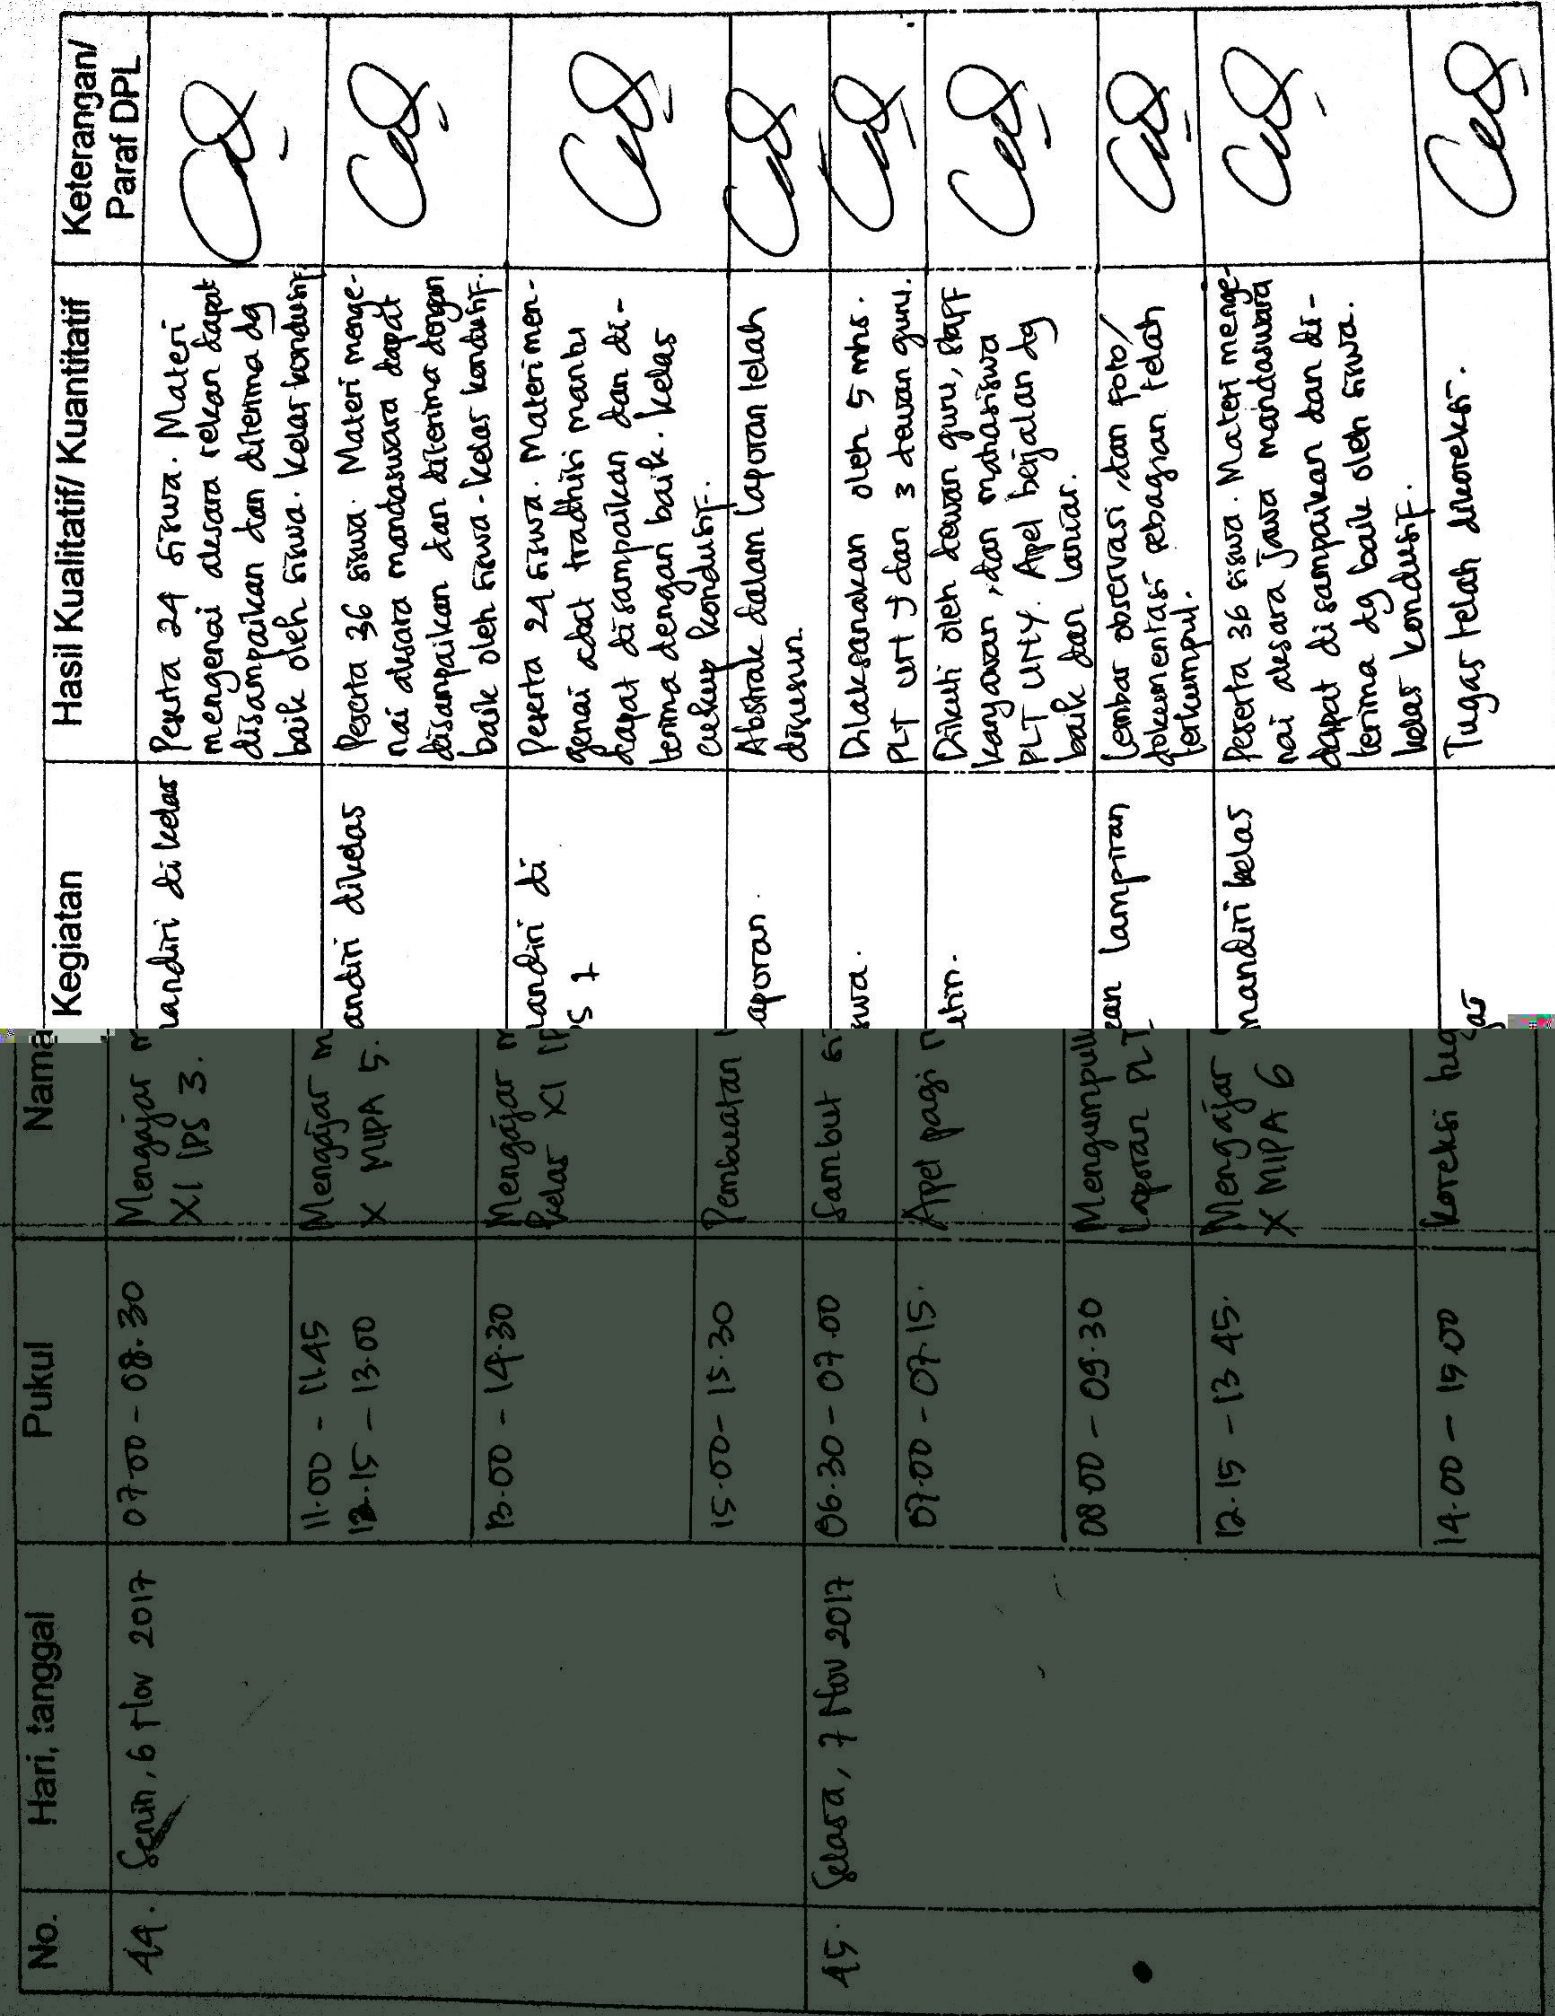 No. Hari, tanggal Pukul Nama Kegiatan Hasil Kualitatif/ Kuantitatif Keterangan/
Paraf DPL
44. Senin, 6 Nov 2017 07.00 - 08.30 Mengajar mandiri di kelas
XI IPS 3.
Peserta 24 siswa. Materi
mengenai aksara rekan dapat
disampaikan dan diterima dg
baik oleh siswa. Kelas kondusif
11.00 - 11.45
12.15 - 13.00
Mengajar mandiri dikelas
X MIPA 5.
Peserta 36 siswa. Materi menge-
nai aksara mandaswara dapat
disampaikan dan diterima dengan
baik oleh siswa. Kelas kondusif.
13.00 - 14.30
Mengajar mandiri di
kelas XI IPS 1
Peserta 24 siswa. Materi men-
genai adat tradhisi mantu
dapat disampaikan dan di-
terima dengan baik. Kelas
cukup kondusif.
15.00 - 15.30
Pembuatan laporan.
Abstrak dalam laporan telah
disusun.
45. Selasa, 7 Nov 2017 06.30 - 07.00 Sambut siswa.
Dilaksanakan oleh 5 mhs.
PLT UNY dan 3 dewan guru.
07.00 - 07.15.
Apel pagi rutin.
Dikuti oleh dewan guru, staff
karyawan, dan mahasiswa
PLT UNY. Apel berjalan dg
baik dan lancar.
08.00 - 09.30
Mengumpulkan lampiran
Laporan PLT
Lembar observasi, dan foto/
dokumentasi sebagian telah
terkumpul.
12.15 - 13.45.
Mengajar mandiri kelas
X MIPA 6
Peserta 36 siswa. Materi menge-
nai aksara jawa mandaswara
dapat disampaikan dan di-
terima dg baik oleh siswa.
kelas kondusif.
14.00 - 15.00
Koreksi tugas
Tugas telah dikoreksi.